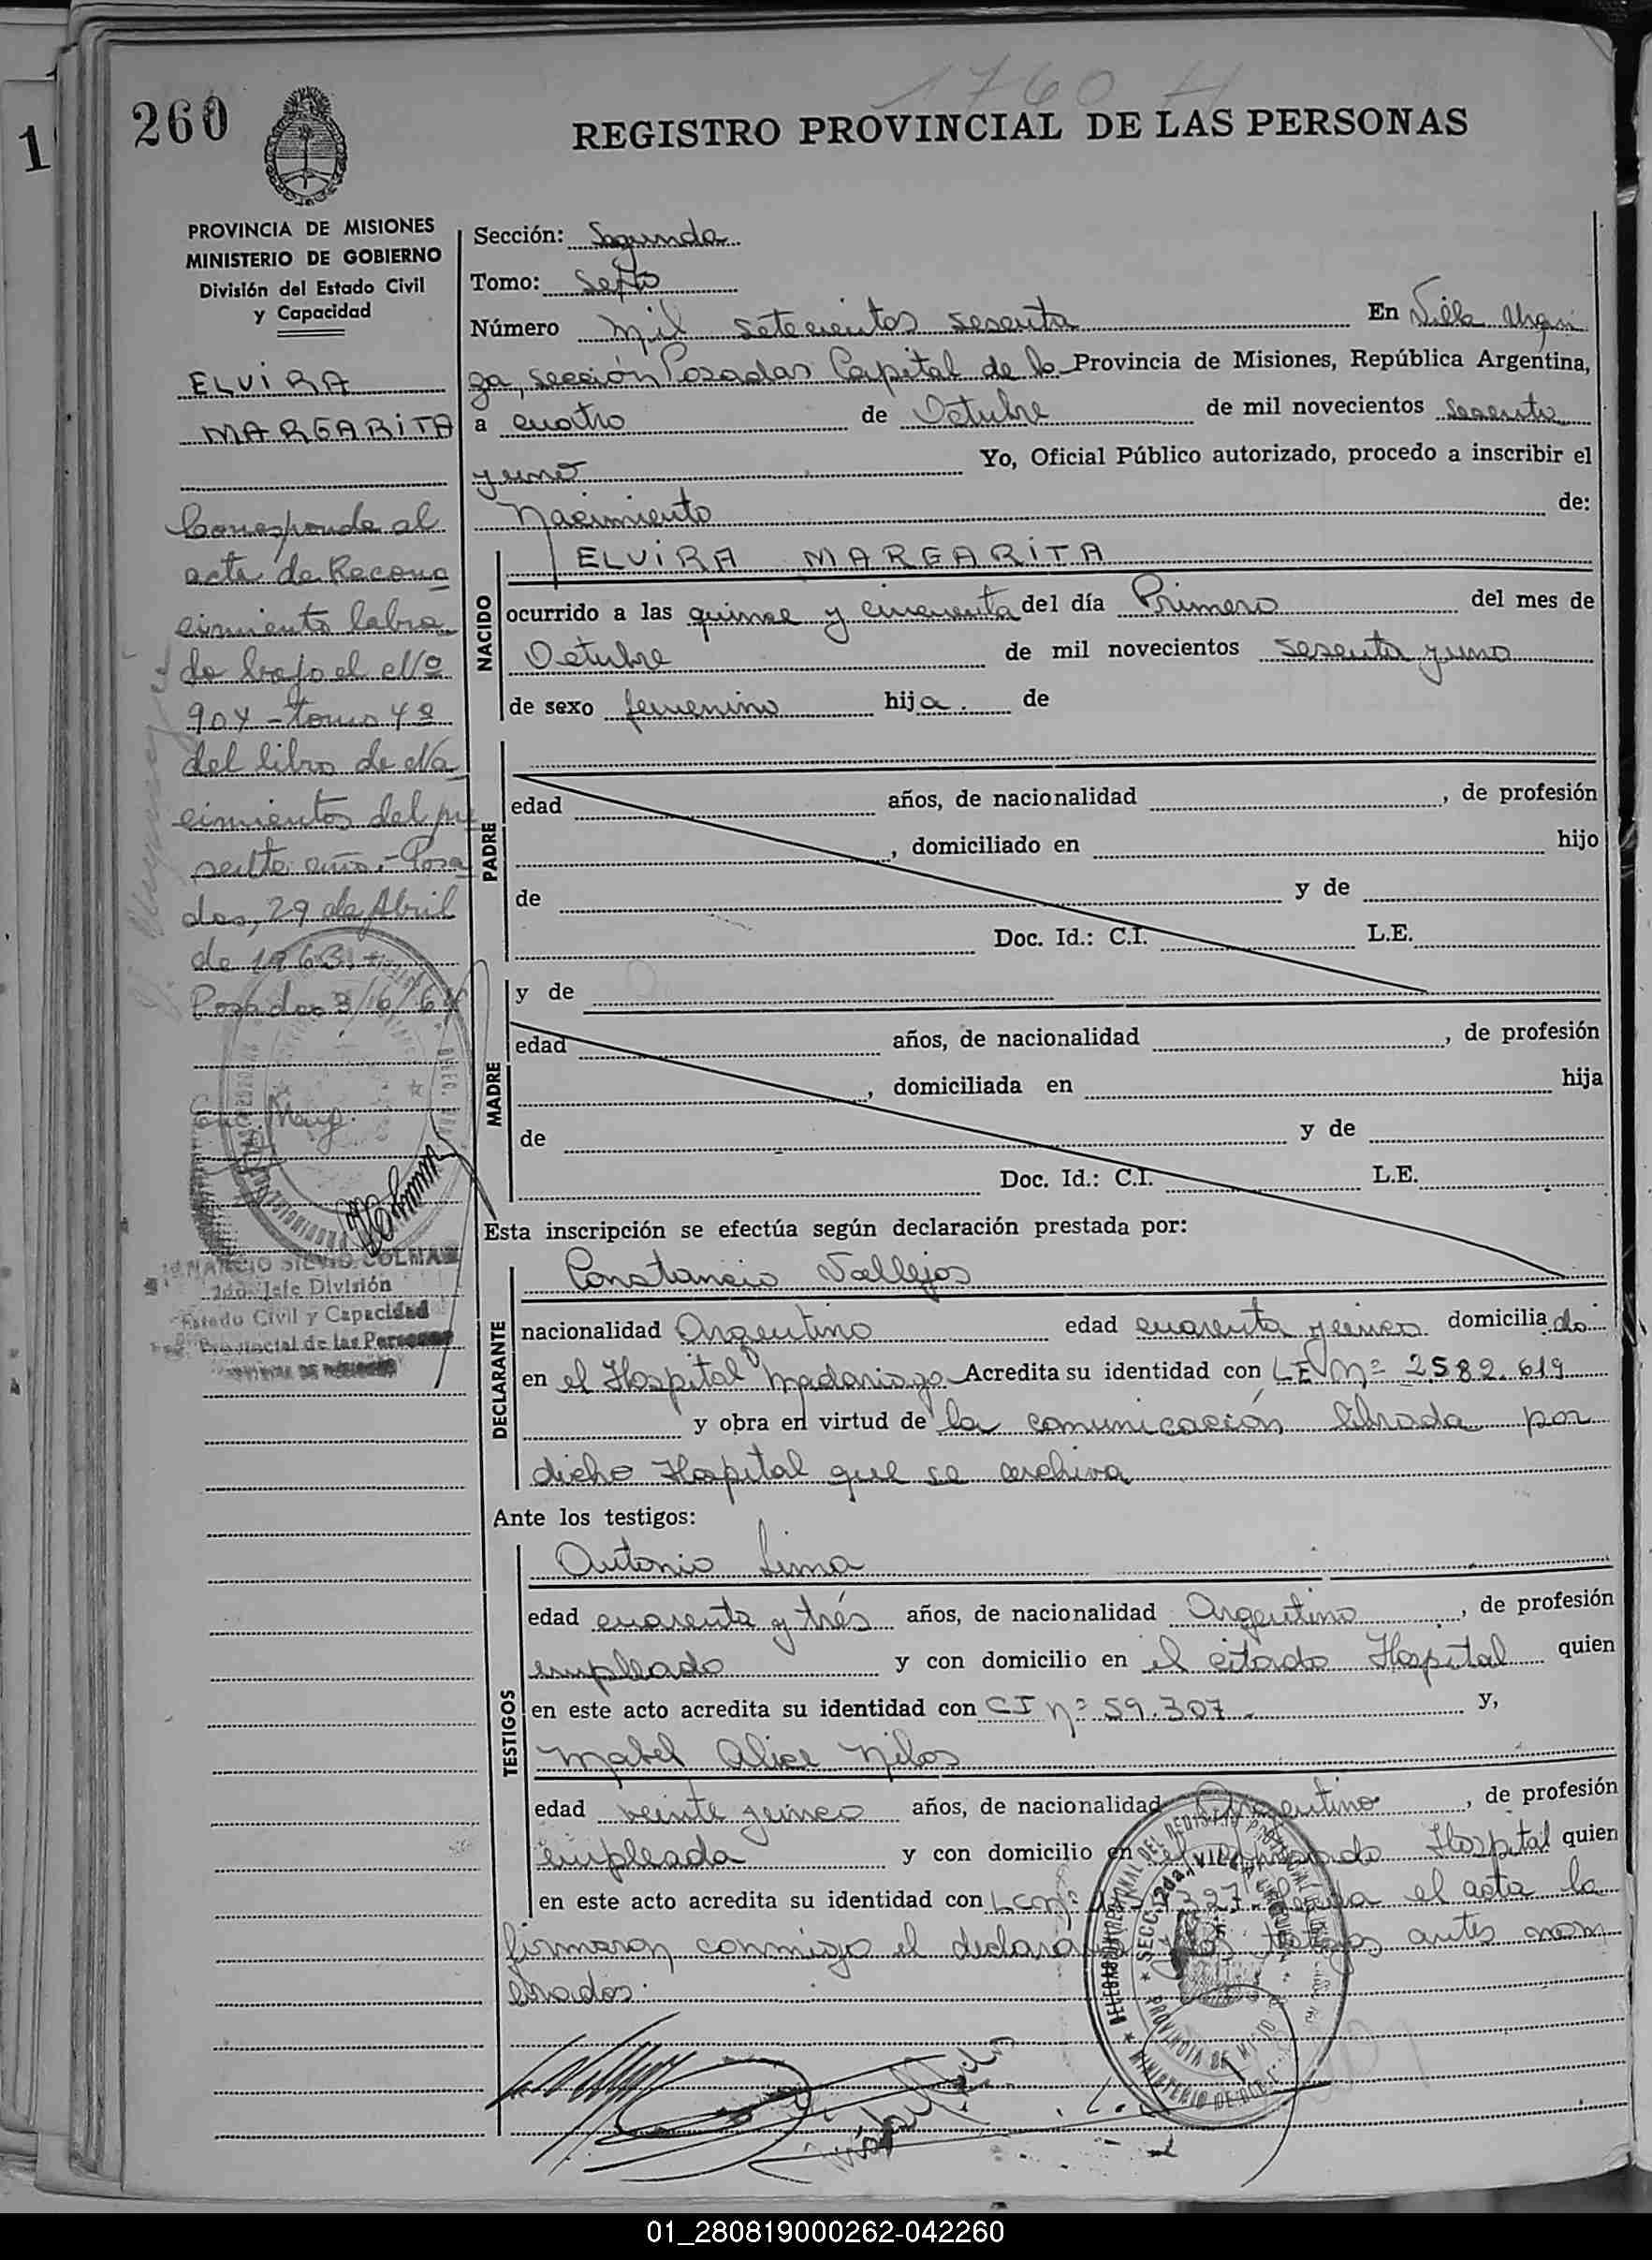 1760 H
260
1
REGISTRO PROVINCIAL DE LAS PERSONAS
PROVINCIA DE MISIONES
MINISTERIO DE GOBIERNO
División del Estado Civil
y Capacidad
ELViRA
MARGARiTA
Corresponde al
acta de Recono
cimiento labra
do bajo el Nº
904 - tomo 4º
del libro de Na
cimientos del pre
sente año.- Posa
das, 29 de Abril
de 1963.-
Posadas 3/6/64
SILVIO COLMAN
2do. Jefe División
Estado Civil y Capacidad
Provincial de las Personas
Sección: Segunda
Tomo: Sexto
Número mil setecientos sesenta En Villa Urqui
za, sección Posadas Capital de la Provincia de Misiones, República Argentina,
a cuatro de Octubre de mil novecientos sesenta
y uno Yo, Oficial Público autorizado, procedo a inscribir el
Nacimiento de:
NACIDO
ELViRA MARGARiTA
ocurrido a las quince y cincuenta del día Primero del mes de
Octubre de mil novecientos sesenta y uno
de sexo femenino hija. de
PADRE
edad años, de nacionalidad , de profesión
, domiciliado en hijo
de y de
Doc. Id.: C.I. L.E.
MADRE
y de
edad años, de nacionalidad , de profesión
, domiciliada en hija
de y de
Doc. Id.: C.I. L.E.
Esta inscripción se efectúa según declaración prestada por:
DECLARANTE
Constancio Vallejos
nacionalidad Argentino edad cuarenta y cinco domiciliado
en el Hospital Madariaga Acredita su identidad con LE Nº 2582.619
y obra en virtud de la comunicación librada por
dicho Hospital que se archiva
Ante los testigos:
TESTIGOS
Antonio Lima
edad cuarenta y trés años, de nacionalidad Argentino , de profesión
empleado y con domicilio en el citado Hospital quien
en este acto acredita su identidad con CI nº 59.307 y,
Mabel Alice
edad veinte y cinco años, de nacionalidad Argentino , de profesión
empleada y con domicilio en el Hospital quien
en este acto acredita su identidad con LC nº el acta la
firmaron conmigo el declarante testigos antes nom
brados.
SECC. 2da. VILLA URQUIZA
PROVINCIA DE MISIONES
01_280819000262-042260